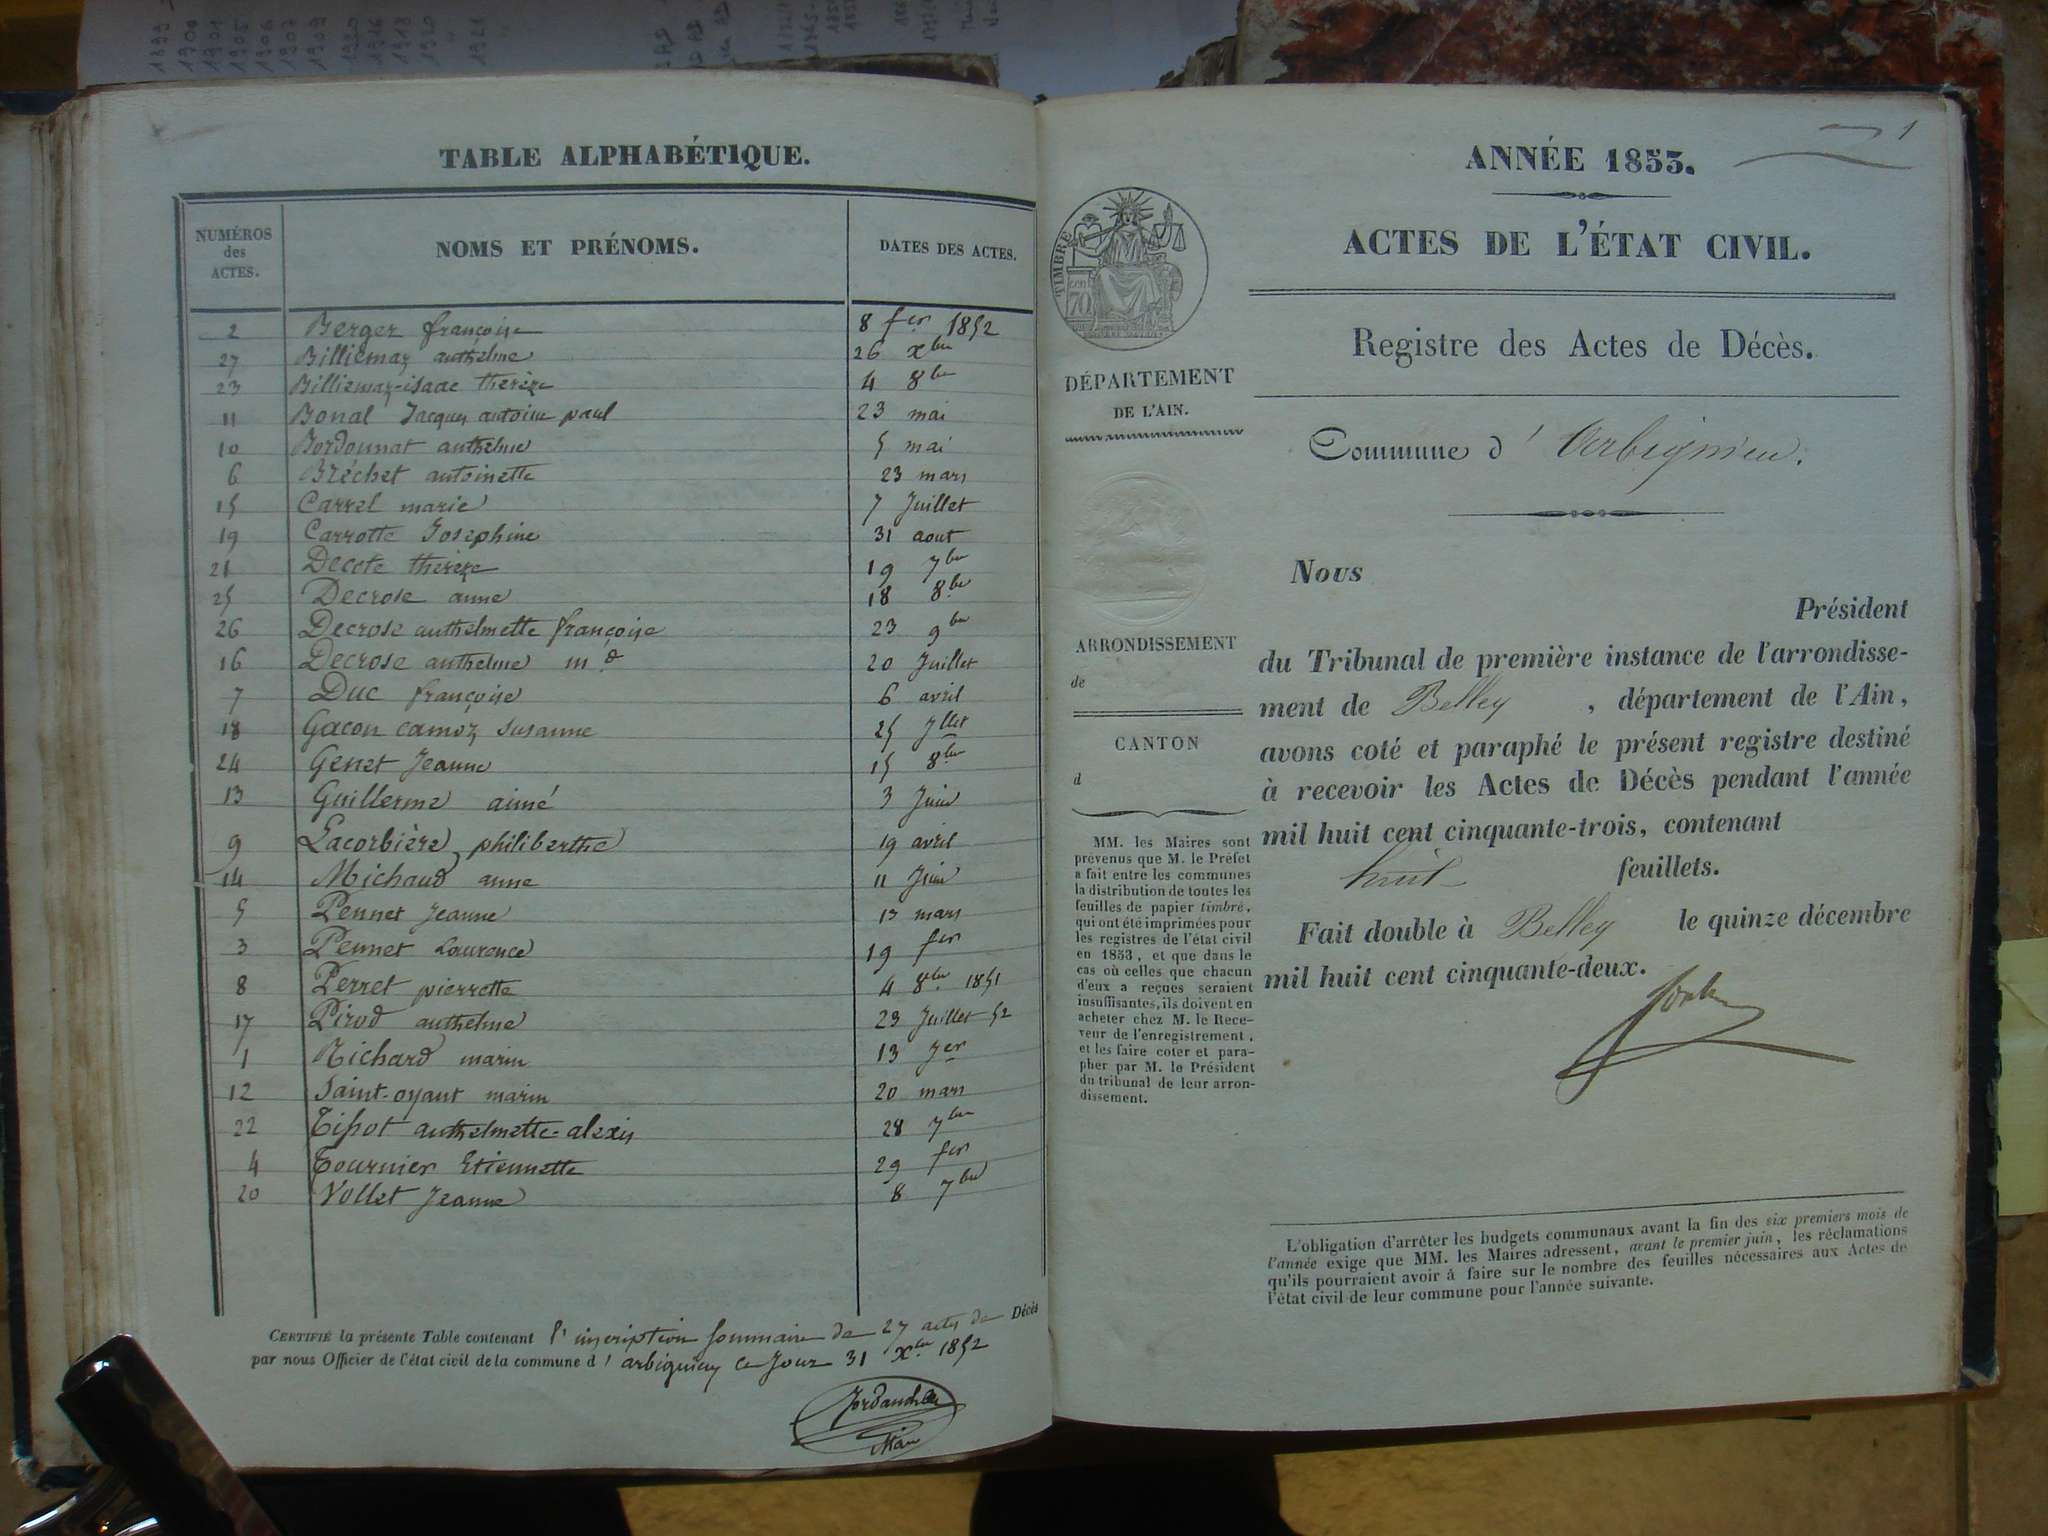 1899
1900
1901
1905
1906
1907
1909
1920
1916
1918
1920
1921
TABLE ALPHABÉTIQUE.
NUMÉROS des ACTES. NOMS ET PRÉNOMS. DATES DES ACTES.
2 Berger françoise 8 fer 1852
27 Billiemaz anthelme 26 xbre
23 Billiemaz-isaac therèze 4 8bre
11 Bonal Jacques antoine paul 23 mai
10 Bordonnat anthelme 5 mai
6 Bréchet antoinette 23 mars
15 Carrel marie 7 Juillet
19 Carrotte Josephine 31 aout
21 Decote therèze 19 7bre
25 Decrose anne 18 8bre
26 Decrose anthelmette françoise 23 9bre
16 Decrose anthelme md 20 Juillet
7 Duc françoise 6 avril
18 Gacon camoz susanne 25 Jllet
24 Genet Jeanne 15 8bre
13 Guillerme aimé 3 Juin
9 Lacorbière philiberthe 19 avril
14 Michaud anne 11 Juin
5 Pennet Jeanne 13 mars
3 Pennet Laurence 19 fer
8 Perret pierrette 4 8bre 1851
17 Pirod anthelme 23 Juillet 52
1 Richard marin 13 Jer
12 Saint-oyant marin 20 mars
22 Tissot anthelmette-alexis 28 7bre
4 Tournier Etiennette 29 fer
20 Vollet Jeanne 8 7bre
CERTIFIÉ la présente Table contenant l'inscription sommaire de 27 actes de Décès
par nous Officier de l'état civil de la commune d'arbignieu ce Jour 31 xbre 1852
1
ANNÉE 1853.
ACTES DE L'ÉTAT CIVIL.
TIMBRE
70
Registre des Actes de Décès.
DÉPARTEMENT
DE L'AIN.
Commune d'Arbignieu.
Nous
Président
ARRONDISSEMENT
de
du Tribunal de première instance de l'arrondisse-
ment de Belley, département de l'Ain,
CANTON
d
avons coté et paraphé le présent registre destiné
à recevoir les Actes de Décès pendant l'année
mil huit cent cinquante-trois, contenant
huit feuillets.
Fait double à Belley le quinze décembre
mil huit cent cinquante-deux.
MM. les Maires sont
prévenus que M. le Préfet
a fait entre les communes
la distribution de toutes les
feuilles de papier timbré,
qui ont été imprimées pour
les registres de l'état civil
en 1853, et que dans le
cas où celles que chacun
d'eux a reçues seraient
insuffisantes, ils doivent en
acheter chez M. le Rece-
veur de l'enregistrement,
et les faire coter et para-
pher par M. le Président
du tribunal de leur arron-
dissement.
L'obligation d'arrêter les budgets communaux avant la fin des six premiers mois de
l'année exige que MM. les Maires adressent, avant le premier juin, les réclamations
qu'ils pourraient avoir à faire sur le nombre des feuilles nécessaires aux Actes de
l'état civil de leur commune pour l'année suivante.